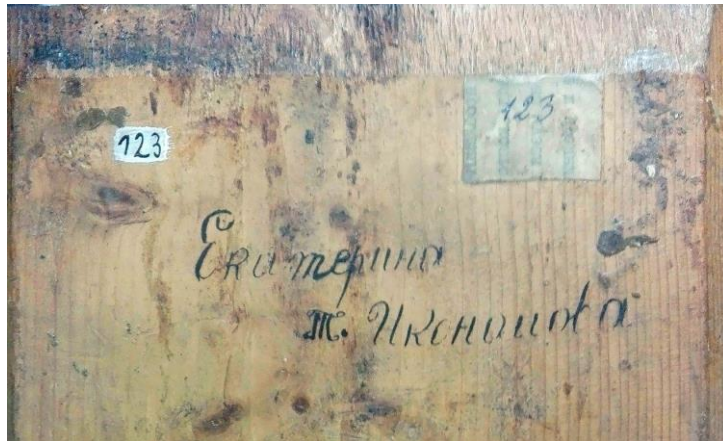 123
123
Екатерина
Т. Икономова